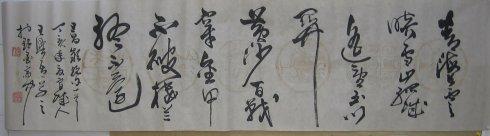 青海長雲
暗雪山孤城
遥望玉門
關
黄沙百戰
穿金甲
不破樓蘭
終不還
王昌齡
丁亥年